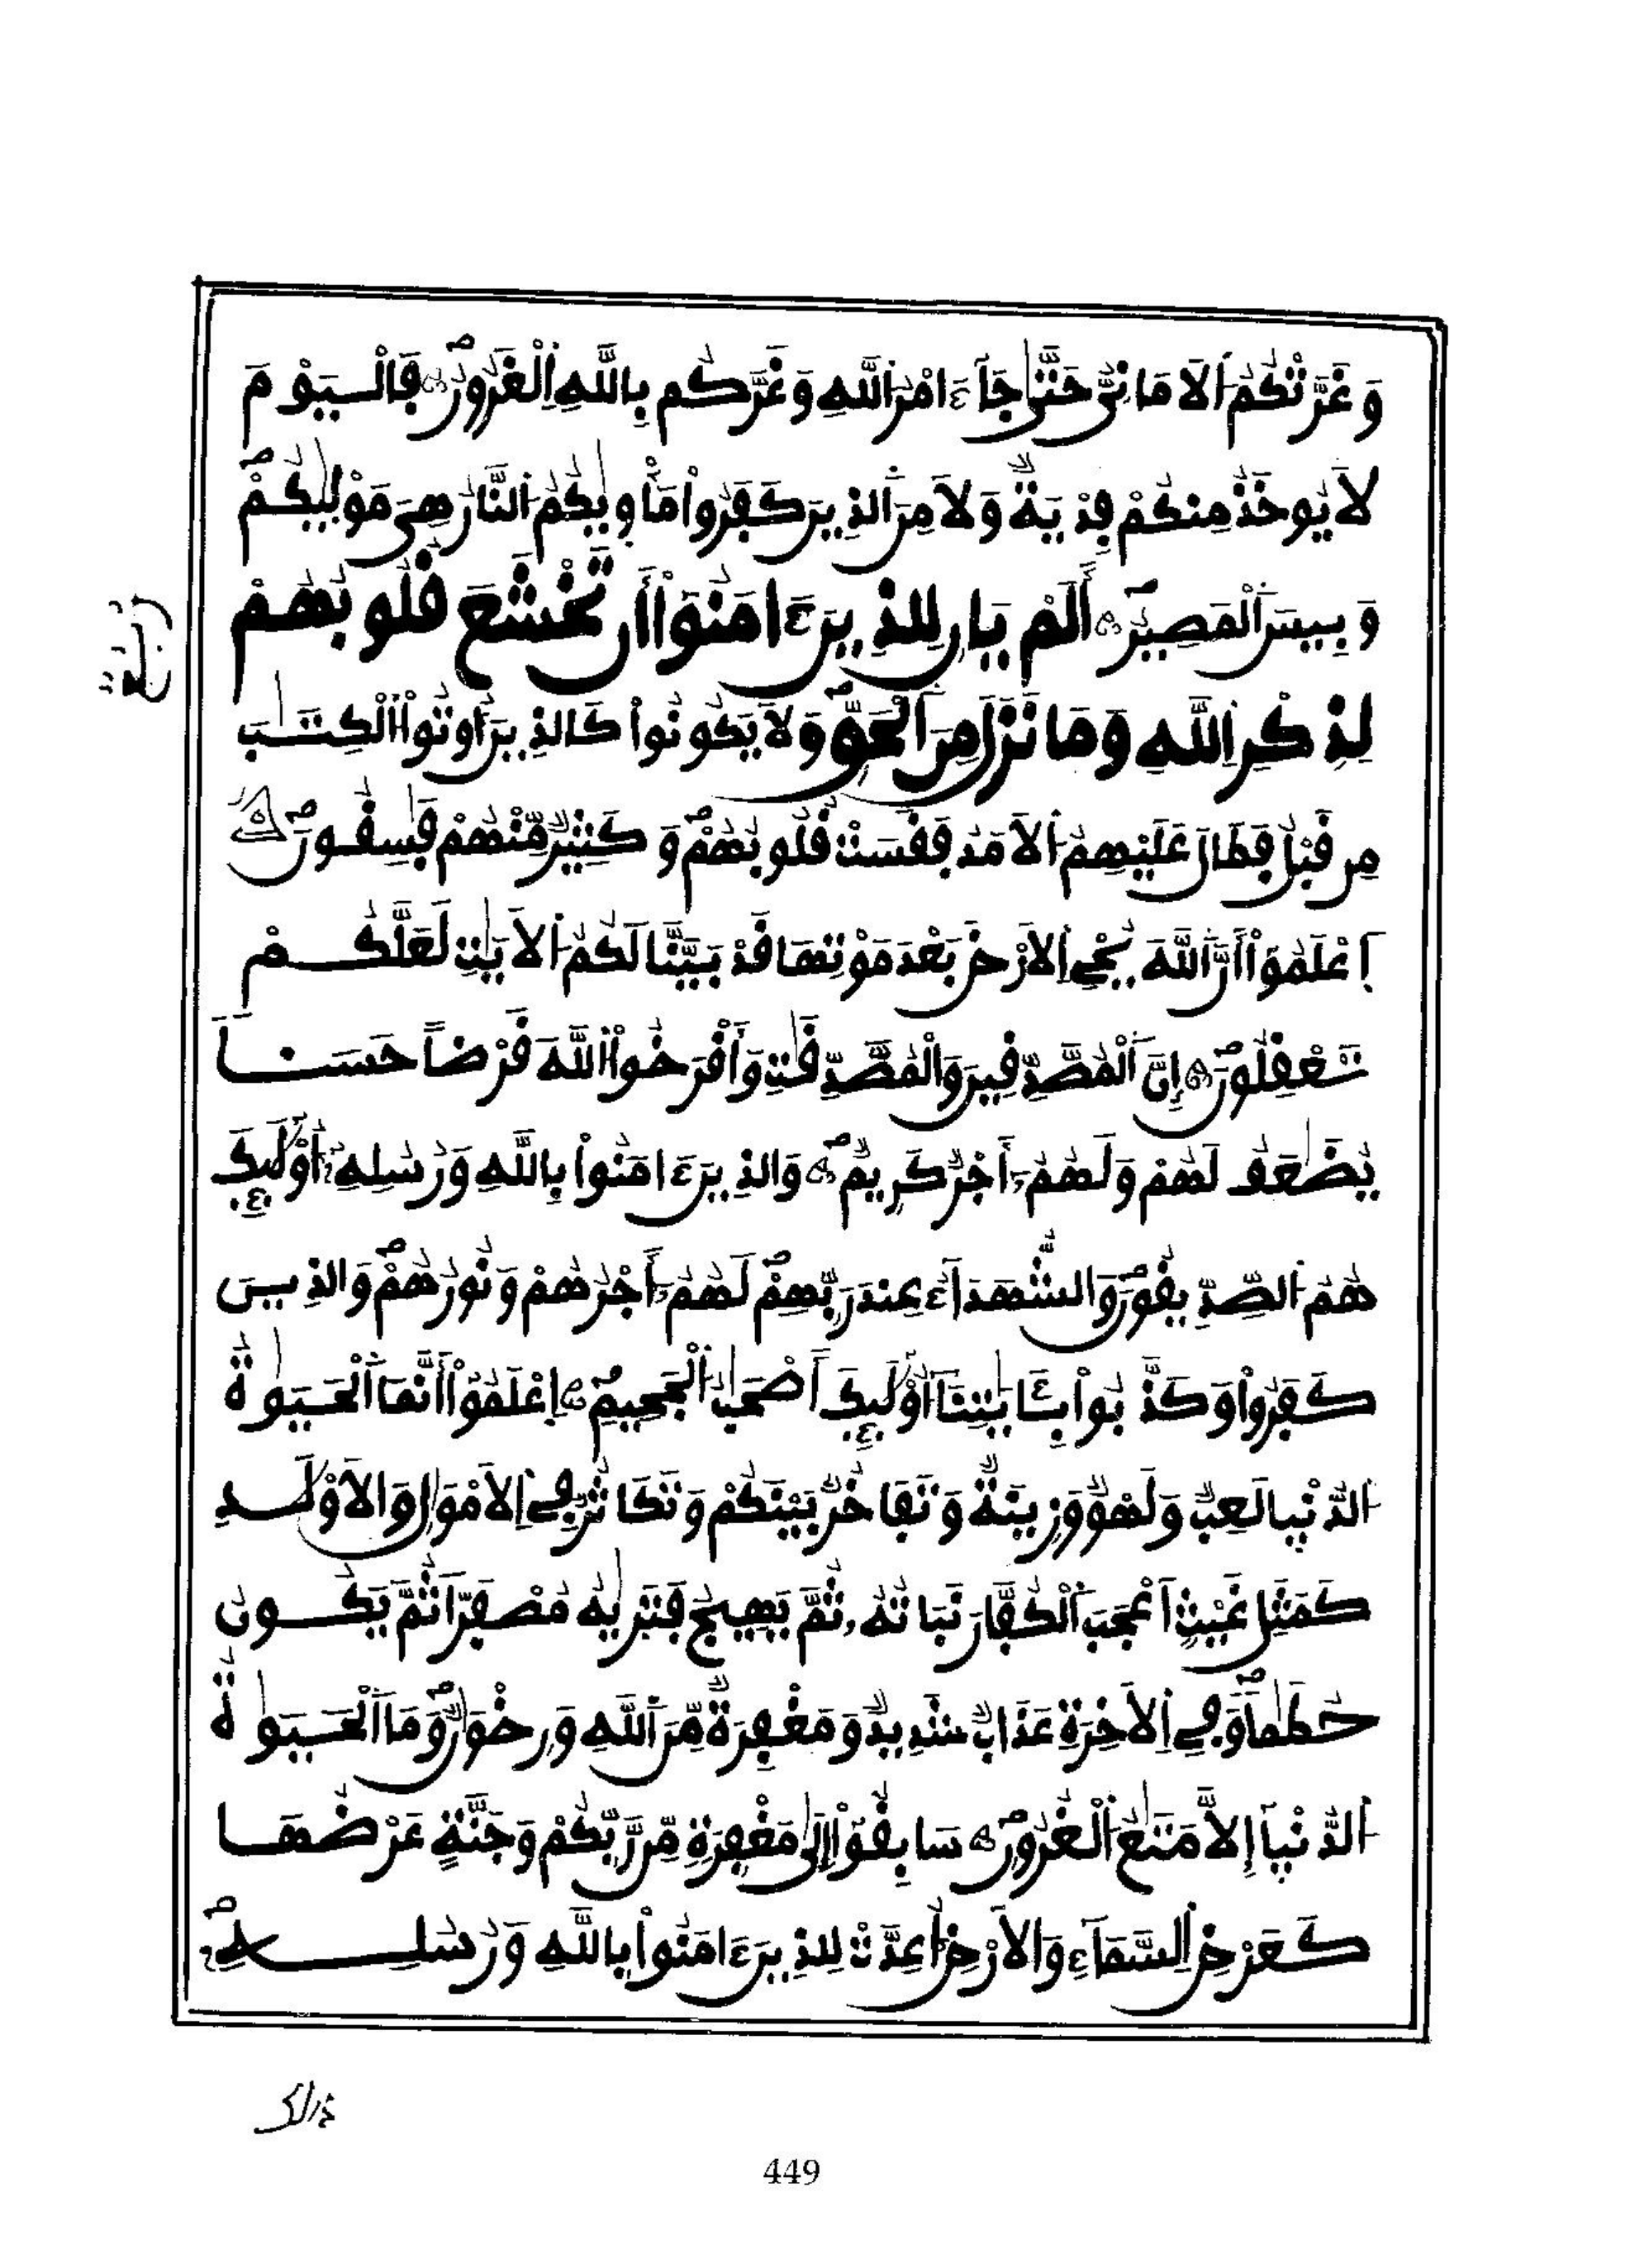 وَغَرَّتْكُمُ اَ۬لَامَانِيُّ حَتَّىٰ جَآءَ امْرُ اُ۬للَّهِ وَغَرَّكُم بِاللَّهِ اِ۬لْغَرُورُۖ فَالْيَوْمَ
لَا يُوخَذُ مِنكُمْ فِدْيَةٌ وَلَا مِنَ اَ۬لذِينَ كَفَرُواْ مَأْوٜيٰكُمُ اُ۬لنَّارُ هِيَ مَوْلٜيٰكُمْۖ
وَبِيسَ اَ۬لْمَصِيرُۖ أَلَمْ يَانِ لِلذِينَ ءَامَنُوٓاْ أَن تَخْشَعَ قُلُوبُهُمْ
لِذِكْرِ اِ۬للَّهِ وَمَا نَزَلَ مِنَ اَ۬لْحَقِّۖ وَلَا يَكُونُواْ كَالذِينَ أُوتُواْ اُ۬لْكِتَٰبَ
مِن قَبْلُ فَطَالَ عَلَيْهِمُ اُ۬لَامَدُ فَقَسَتْ قُلُوبُهُمْۖ وَكَثِيرٌ مِّنْهُمْ فَٰسِقُونَۖ
اَ۪عْلَمُوٓاْ أَنَّ اَ۬للَّهَ يُحْيِ اِ۬لَارْضَ بَعْدَ مَوْتِهَا قَدْ بَيَّنَّا لَكُمُ اُ۬لَايَٰتِ لَعَلَّكُمْ
تَعْقِلُونَۖ إِنَّ اَ۬لْمُصَّدِّقِينَ وَالْمُصَّدِّقَٰتِ وَأَقْرَضُواْ اُ۬للَّهَ قَرْضاً حَسَناٗ
يُضَٰعَفُ لَهُمْ وَلَهُمُۥٓ أَجْرٌ كَرِيمٌۖ وَالذِينَ ءَامَنُواْ بِاللَّهِ وَرُسُلِهِۦٓ أُوْلَٰٓئِكَ
هُمُ اُ۬لصِّدِّيقُونَۖ وَالشُّهَدَآءُ عِندَ رَبِّهِمْۖ لَهُمُۥٓ أَجْرُهُمْ وَنُورُهُمْۖ وَالذِينَ
كَفَرُواْ وَكَذَّبُواْ بِـَٔايَٰتِنَآ أُوْلَٰٓئِكَ أَصْحَٰبُ اُ۬لْجَحِيمِۖ اِ۪عْلَمُوٓاْ أَنَّمَا اَ۬لْحَيَوٰةُ
اُ۬لدُّنْيٜا لَعِبٌ وَلَهْوٌ وَزِينَةٌ وَتَفَاخُرٌ بَيْنَكُمْ وَتَكَاثُرٌ فِي اِ۬لَامْوَٰلِ وَالَاوْلَٰدِ
كَمَثَلِ غَيْثٍ اَعْجَبَ اَ۬لْكُفَّارَ نَبَاتُهُۥ ثُمَّ يَهِيجُ فَتَرٜيٰهُ مُصْفَرّاً ثُمَّ يَكُونُ
حُطَٰماًۖ وَفِي اِ۬لَاخِرَةِ عَذَابٌ شَدِيدٌ وَمَغْفِرَةٌ مِّنَ اَ۬للَّهِ وَرِضْوَٰنٌۖ وَمَا اَ۬لْحَيَوٰةُ
اُ۬لدُّنْيٜآ إِلَّا مَتَٰعُ اُ۬لْغُرُورِۖ سَابِقُوٓاْ إِلَىٰ مَغْفِرَةٍ مِّن رَّبِّكُمْ وَجَنَّةٍ عَرْضُهَا
كَعَرْضِ اِ۬لسَّمَآءِ وَالَارْضِ أُعِدَّتْ لِلذِينَ ءَامَنُواْ بِاللَّهِ وَرُسُلِهِۦۖ
رُبُع
ذالك
449